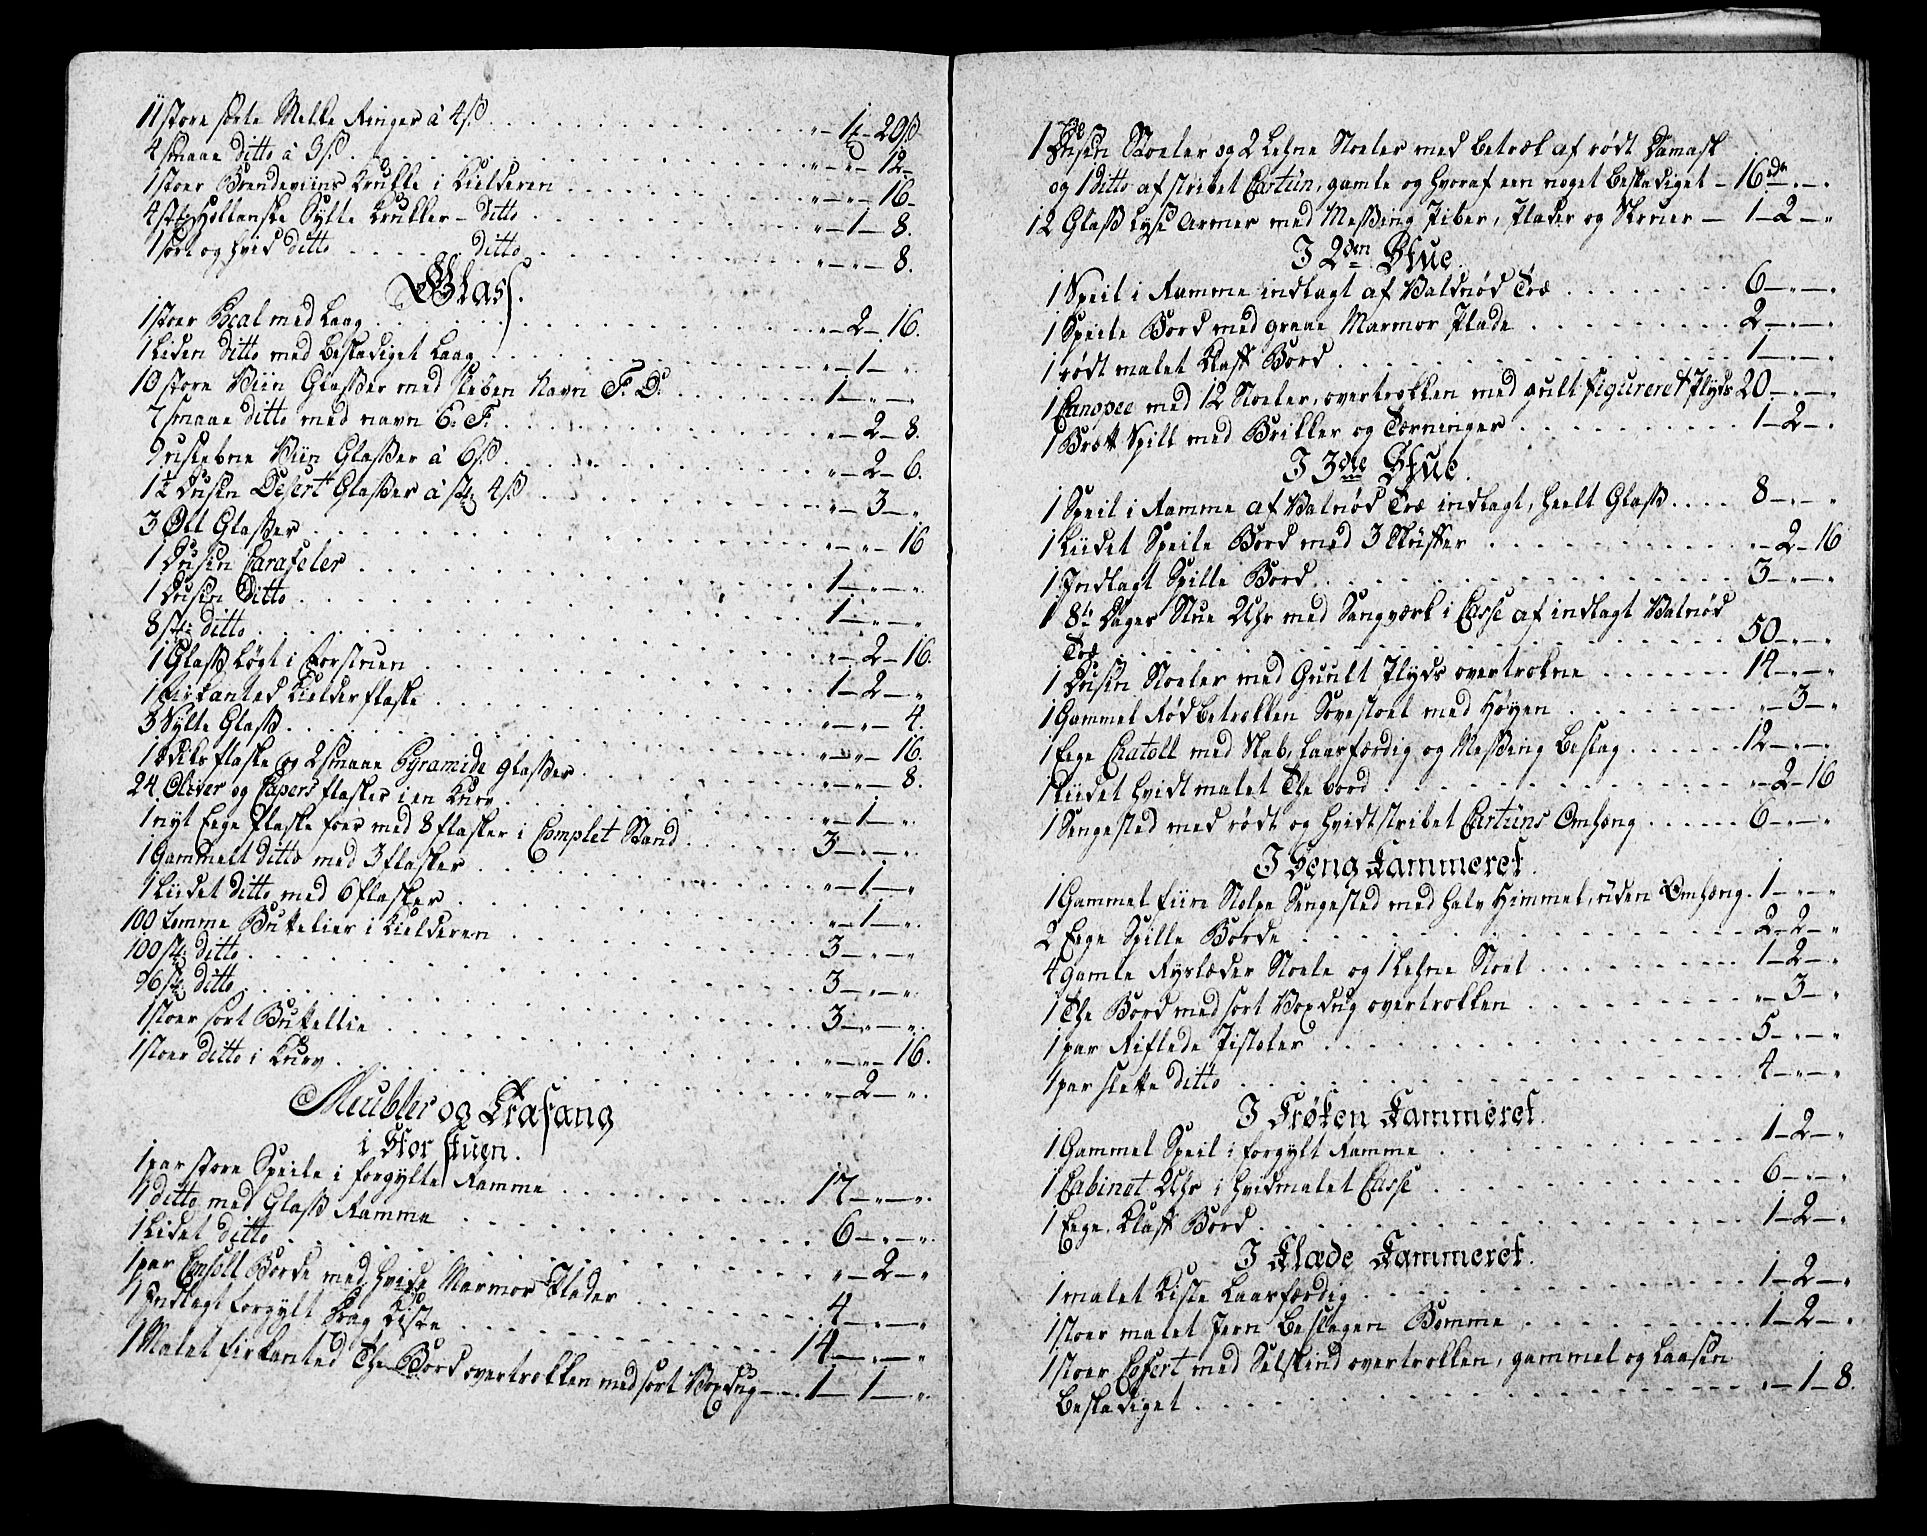 11 store sorte Melke Ringer à 4 ß . . . „ — 1 — 20 ß
4 smaae ditto à 3 ß . . . „ — „ — 12
1 stoer Brendeviins Krukke i Kielderen . . . „ — „ — 16
4 stk: Hollanske Sylte Krukker — ditto . . . „ — 1 — 8.
1 sort og hvid ditto . . . ditto . . . „ — „ — 8.
Glass.
1 stoer Pocal med Laag . . . „ — 2 — 16.
1 Liden ditto med beskadiget Laag . . . „ — 1 — „
10 store Viin Glasser med sleben Navn F: D: . . . 1 — „ — „
7 smaae ditto med navn C: F: . . . „ — 2 — 8.
9 uslebne Viin Glasser à 6 ß . . . „ — 2 — 6.
1½ Dusin Desert Glasser à stk: 4 ß . . . „ — 3 — „
3 Øll Glasser . . . „ — „ — 16
1 Dusin Carafeler . . . 1 — „ — „
1 Dusin Ditto . . . 1 — „ — „
8 stk: ditto . . . „ — 2 — 16.
1 Glass Løgt i Forstuen . . . 1 — 2 — „
1 Firkanted Kielderflaske . . . „ — „ — 4.
3 Sylte Glass . . . „ — „ — 16.
1 Ediks flaske og 2 smaae Pyramide glasser . . . „ — „ — 8.
24 Oliver og Capers flasker i en Kurv . . . „ — 1 — „
1 nyt Eege flaske foer med 8 flasker i Complet Stand . . . 3 — „ — „
1 Gammelt ditto med 3 flasker . . . „ — 1 — „
1 Liidet ditto med 6 flasker . . . „ — 1 — „
100 tomme Buttelier i Kielderen . . . 3 — „ — „
100 stk: ditto . . . 3 — „ — „
96 stk: ditto . . . 3 — „ — „
1 stoer sort Buttellie . . . „ — „ — 16.
1 stoer ditto i Kurv . . . „ — 2 — „
Meubler og Trafang
i Stor stuen.
1 par store Speile i forgylte Ramme . . . 17 — „ — „
1 ditto med Glass Ramme . . . 6 — „ — „
1 Lidet ditto . . . „ — 2 — „
1 par Consoll Borde med hvide Marmor Plader . . . 4 — „ — „
1 Indlagt forgylt Drag Kiste . . . 14 — „ — „
1 Malet firkanted The Bord overtrokken med sort Voxdug . . . 1 — 1 — „
1 Dusin Stoeler og 2 Lehne Stoeler med betræk af rødt Damask
og 1 ditto af stribet Cartun, gamle og hvoraf een noget beskadiget — 16 rdr — „ — „
12 Glass Lyse Armer med Messing Piber, Plader og Skruer — 1 — 2 — „
I 2den Stue.
1 Speil i Ramme indlagt af Valdnød Træ . . . 6 — „ — „
1 Speile Bord med graae Marmor Plade . . . 2 — „ — „
1 rødt malet Klaff Bord . . . 1 — „ — „
1 Canopee med 12 Stoeler, overtrokken med gult figureret Plyds 20 — „ — „
1 Bræt Spill med Brikker og Tærninger . . . 1 — 2 — „
I 3die Stue.
1 Speil i Ramme af Valnød Træ indlagt, heelt Glass . . . 8 — „ — „
1 Liidet Speile Bord med 3 Skuffer . . . „ — 2 — 16
1 Indlagt Spille Bord . . . 3 — „ — „
1 8te Dages Stue Uhr med Sangværk i Casse af indlagt Valnød
Træ . . . 50 — „ — „
1 Dusin Stoeler med Guult Plyds overtrokne . . . 14 — „ — „
1 Gammel Rødbetrokken Sovestoel med Høyen . . . „ — 3 — „
1 Eege Chatoll med Skab, Laasfærdig og Messing Beslag . . . 12 — „ — „
1 Liidet hvidt malet The bord . . . „ — 2 — 16
1 Sengested med rødt og hvidt stribet Cartuns Omhæng . . . 6 — „ — „
I Seng Kammeret.
1 Gammel fiire Stolpe Sengested med halv Himmel, uden Omhæng . 1 — „ — „
2 Eege Spille Borde . . . 2 — 2 — „
4 gamle Ryslæder Stoele og 1 Lehne Stoel . . . 1 — 2 — „
1 The Bord med sort Voxdug overtrokken . . . „ — 3 — „
1 par Riflede Pistoler . . . 5 — „ — „
1 par slette ditto . . . 4 — „ — „
I Frøken Kammeret.
1 Gammel Speil i forgylt Ramme . . . 1 — 2 — „
1 Cabinet Uhr i hvidmalet Casse . . . 6 — „ — „
1 Eege Klaff Bord . . . 1 — 2 — „
I Klæde Kammeret.
1 malet Kiste Laasfærdig . . . 1 — 2 — „
1 stoer malet Jern beslagen Bomme . . . 1 — 2 — „
1 stoer Cofert med Sælskind overtrokken, gammel og Laasen
beskadiget . . . „ — 1 — 8.